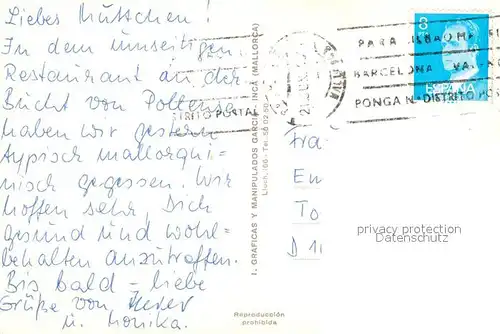 Liebes Muttchen!
In dem umseitigen
Restaurant an der
Bucht von Pollensa
haben wir gestern
typisch mallorqui-
nisch gegessen. Wir
hoffen sehr, Dich
gesund und wohl-
behalten anzutreffen.
Bis bald – liebe
Grüße von
u. Monika.
I. GRAFICAS Y MANIPULADOS GARCIA - INCA (MALLORCA)
Reproducción
prohibida
PARA BILBAO MA
BARCELONA VALENC
PONGA N. DISTRITO POS
TRITO POSTAL
3
ESPAÑA
Fra
En
To
D 1
privacy protection
Datenschutz